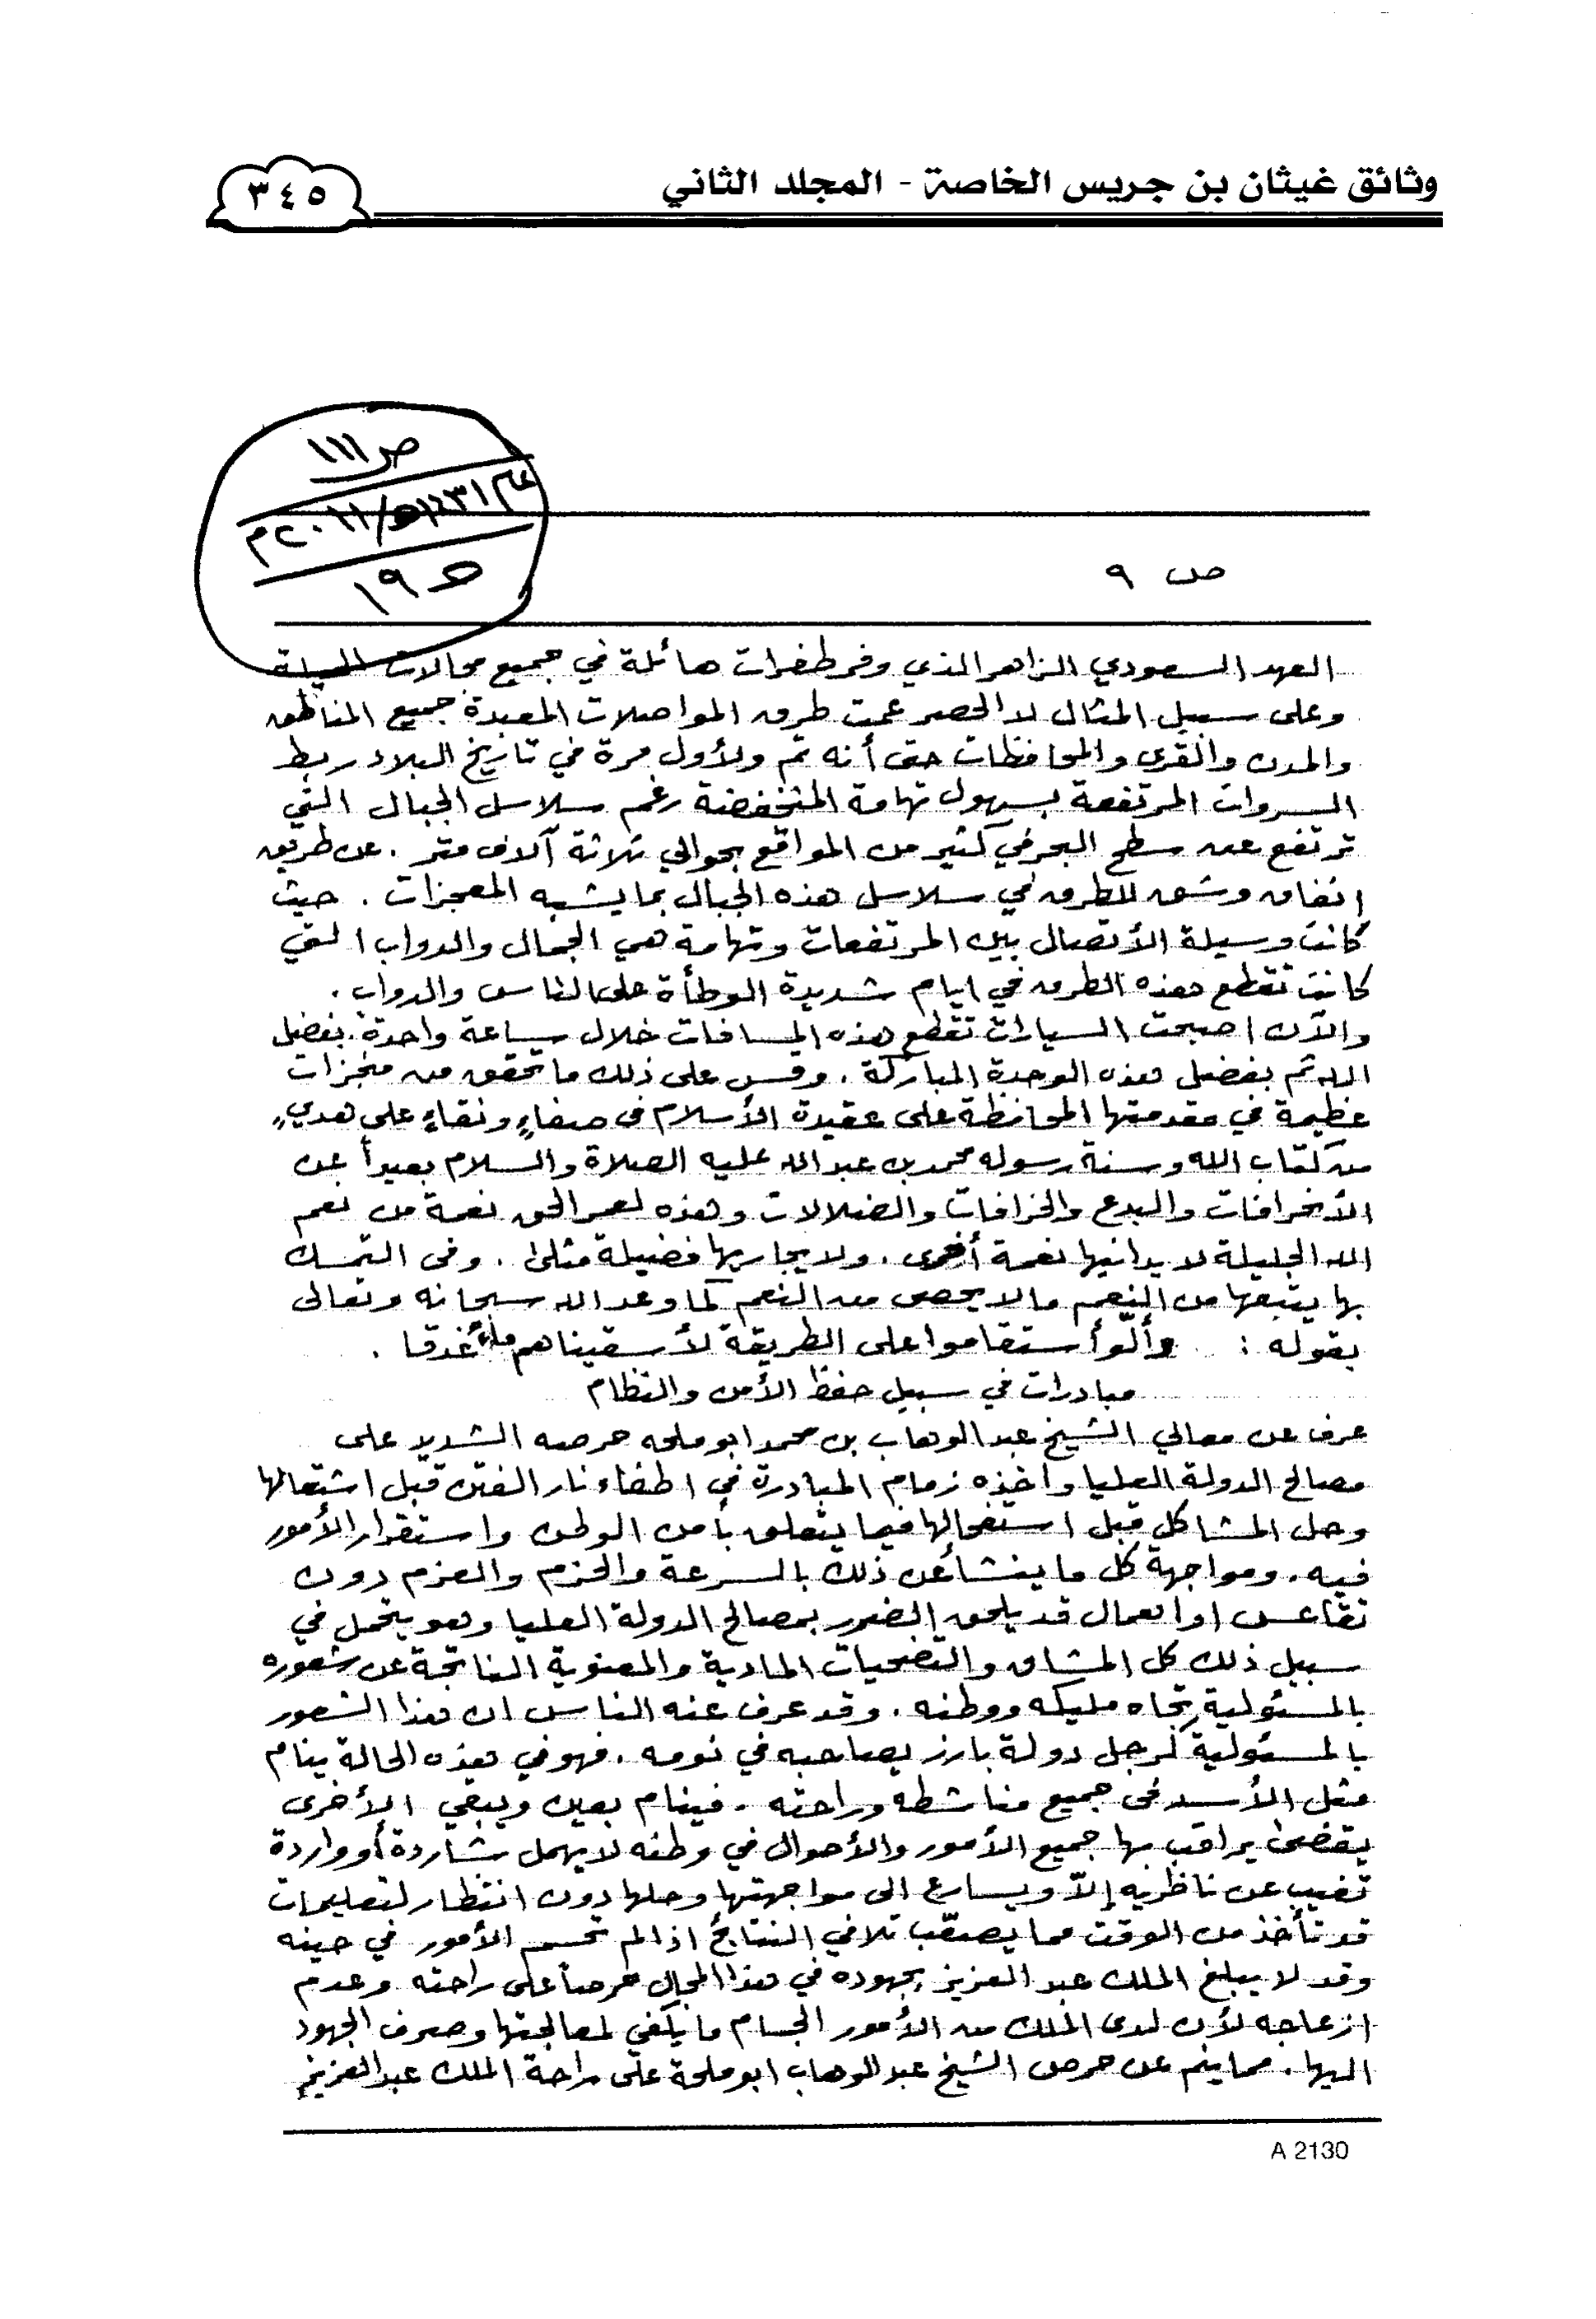 وثائق غيثان بن جريس الخاصة - المجلد الثاني
٣٤٥
ص ١١١
١٤٣١هـ/٢٠١١م
١٩
ص ٩
العهد السعودي الزاهر الذي وفر طفرات هائلة في جميع مجالات الحياة
وعلى سبيل المثال لا الحصر عمت طرق المواصلات المعبدة جميع المناطق
والمدن والقرى والمحافظات حتى أنه تم ولأول مرة في تاريخ البلاد ربط
السروات المرتفعة بسهول تهامة المنخفضة رغم سلاسل الجبال التي
ترتفع عن سطح البحر في كثير من المواقع بحوالي ثلاثة آلاف متر . عن طريق
انفاق وشق للطرق في سلاسل هذه الجبال بما يشبه المعجزات . حيث
كانت وسيلة الأتصال بين المرتفعات وتهامة هي الجمال والدواب التي
كانت تقطع هذه الطرق في ايام شديدة الوطأة على الناس والدواب .
والآن اصبحت السيارات تقطع هذه المسافات خلال ساعة واحدة . بفضل
الله ثم بفضل هذه الوحدة المباركة . وقس على ذلك ما تحقق من منجزات
عظيمة في مقدمتها المحافظة على عقيدة الأسلام في صفاءٍ ونقاءٍ على هديٍ
من كتاب الله وسنة رسوله محمد بن عبد الله عليه الصلاة والسلام بعيداً عن
الأنحرافات والبدع والخرافات والضلالات وهذه لعمر الحق نعمة من نعم
الله الجليلة لا يدانيها نعمة أخرى . ولا يجاريها فضيلة مثلى . وفي التمسك
بها يتبعها من النعم ما لا يحصى من النعم كما وعد الله سبحانه وتعالى
بقوله : وألّو أستقاموا على الطريقة لأسقيناهم ماء غدقا .
مبادرات في سبيل حفظ الأمن والنظام
عرف عن معالي الشيخ عبد الوهاب بن محمد ابو ملحه حرصه الشديد على
مصالح الدولة العليا واخذه زمام المبادرة في اطفاء نار الفتن قبل اشتعالها
وحل المشاكل قبل استفحالها فيما يتعلق بأمن الوطن واستقرار الأمور
فيه . ومواجهة كل ما ينشأ عن ذلك بالسرعة والحزم والعزم دون
تقاعس او اهمال قد يلحق الضرر بمصالح الدولة العليا وهو يتحمل في
سبيل ذلك كل المشاق والتضحيات المادية والمعنوية الناتجة عن شعوره
بالمسئولية تجاه مليكه ووطنه . وقد عرف عنه الناس ان هذا الشعور
بالمسئولية لرجل دولة بارز يصاحبه في نومه . فهو في هذه الحالة ينام
مثل الأسد في جميع مناشطه وراحته . فينام بعين ويبقي الأخرى
يقضى يراقب بها جميع الأمور والأحوال في وطنه لا يهمل شاردة أو واردة
تغيب عن ناظريه إلاّ ويسارع الى مواجهتها وحلها دون انتظار لتعليمات
قد تأخذ من الوقت مما يصعّب تلافي النتائج اذا لم تحسم الأمور في حينه
وقد لا يبلغ الملك عبد العزيز بجهوده في هذا المجال حرصاً على راحته وعدم
ازعاجه لأن لدى الملك من الأمور الجسام ما يكفي لمعالجتها وصرف الجهود
اليها . مما ينم عن حرص الشيخ عبد الوهاب ابو ملحة على راحة الملك عبد العزيز
A 2130